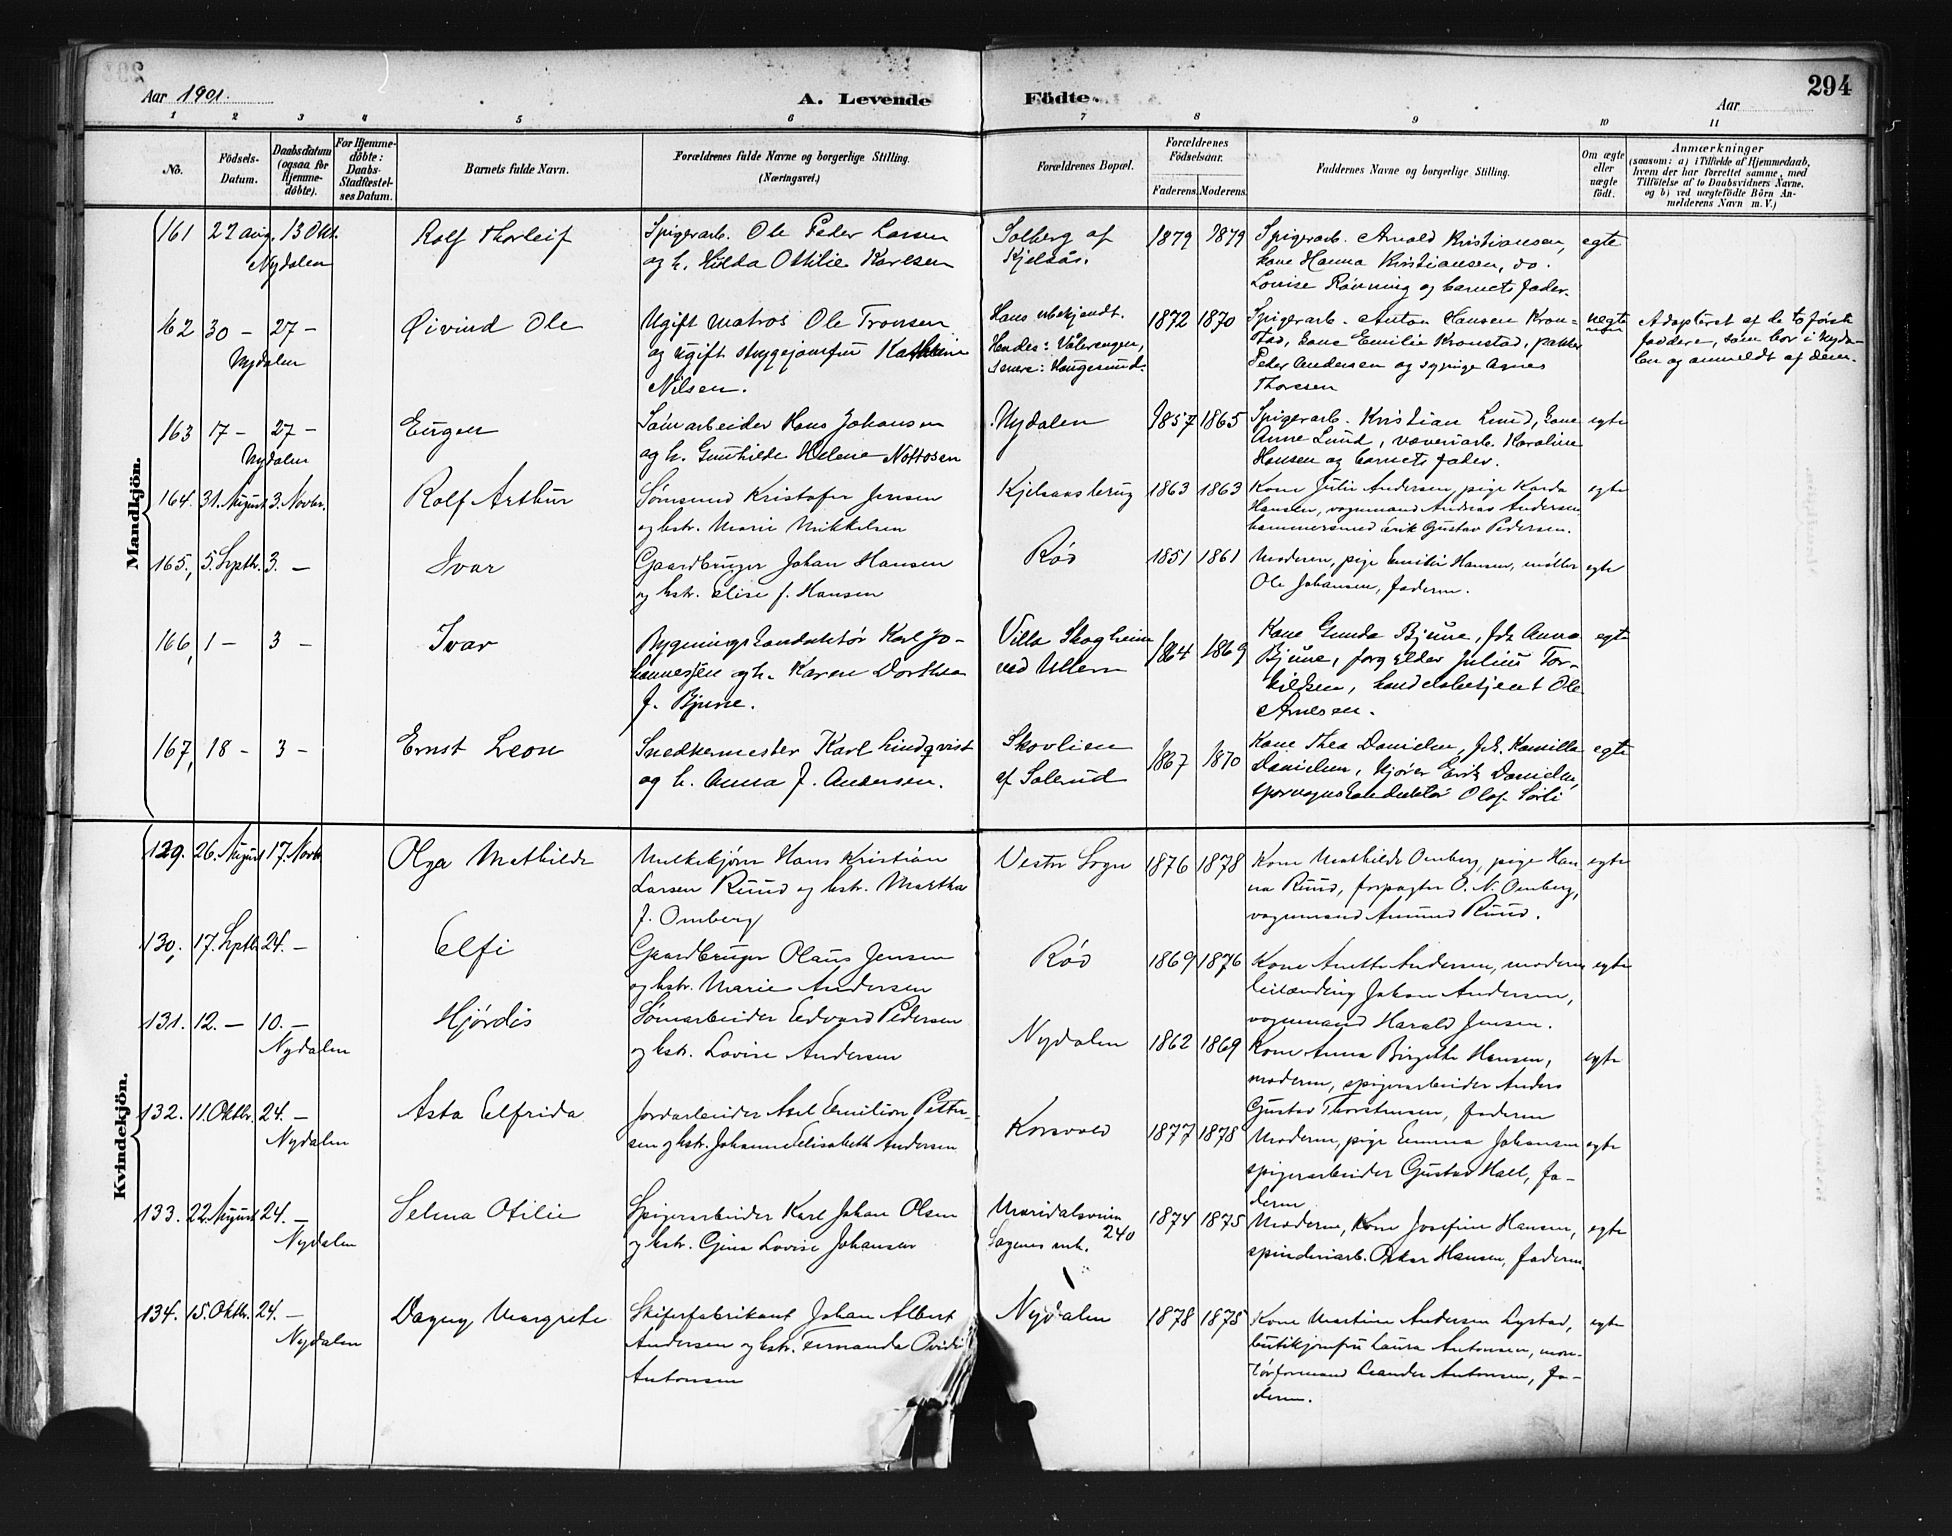 294
Aar 1901.
A. Levende Födte.
Aar
1 2 3 4 5 6 7 8 9 10 11
No.
Födsels-
Datum.
Daabsdatum
(ogsaa for
Hjemme-
döbte).
For Hjemme-
döbte:
Daabs-
Stadfæstel-
ses Datum.
Barnets fulde Navn.
Forældrenes fulde Navne og borgerlige Stilling.
(Næringsvei.)
Forældrenes Bopæl.
Forældrenes
Födselsaar.
Faderens. Moderens.
Faddernes Navne og borgerlige Stilling.
Om ægte
eller
uægte
født.
Anmærkninger
(saasom: a) i Tilfælde af Hjemmedaab,
hvem der har forrettet samme, med
Tilföielse af to Daabsvidners Navne,
og b) ved uægtefödte Börn An-
melderens Navn m. V.)
Mandkjön.
161 27 aug. 13 Okt.
Nydalen
Rolf Thorleif
Spigerarb. Ole Peder Larsen
og h. Hilda Ottilie Karlsen
Solberg af
Kjelsås.
1879 1879
Spigerarb. Arnold Kristiansen,
kone Hanna Kristiansen, do.
Louise Rönning og barnets fader.
egte
162 30 - 27 -
Nydalen
Øivind Ole
Ugift matros Ole Tronsen
og ugift skyggejomfru Kathrine
Nilsen.
Hans ubekjendt.
Hendes: Vålerengen,
senere: Haugesund.
1872 1870
Spigerarb. Anton Hansen Kron-
stad, kone Emilie Kronstad, pakker
Peder Andersen og sypige Agnes
Thorsen
uegte
Adopteret af de to første
faddere, som bor i Nyda-
len og anmeldt af dem.
163 17 - 27 -
Nydalen
Eugen
Sömarbeider Hans Johansen
og h. Gunhilde Helene Nottosen
Nydalen
1857 1865
Spigerarb. Kristian Lund, kone
Anne Lund, væveriarb. Karoline
Hansen og barnets fader.
egte
164. 31. August 3. Novbr.
Rolf Arthur
Sömsmed Kristofer Jensen
og hstr. Marie Mikkelsen
Kjelsaasbrug
1863 1863
Kone Julie Andersen, pige Karda
Hansen, vognmand Andreas Andersen
hammersmed Erik Gustav Pedersen.
egte
165, 5. Septbr. 3. -
Ivar
Gaardbruger Johan Hansen
og hstr. Elise f. Hansen
Röd
1851 1861
Moderen, pige Emilie Hansen, möller
Ole Johansen, faderen.
egte
166, 1 - 3 -
Ivar
Bygningskonduktør Karl Jo-
hannesen og h. Karen Dorthea
f. Bjune.
Villa Skogheim
ved Ullern
1864 1869
Kone Gunda Bjune, frk. Anna
Bjune, forgylder Julius Tor-
kildsen, handelsbetjent Ole
Arnesen.
egte
167, 18 - 3 -
Ernst Leon
Snedkermester Karl Lindqvist
og h. Anna f. Andersen.
Skovlien
af Solerud
1867 1870
Kone Thea Danielsen, frk. Kamilla
Danielsen, kjører Erik Danielsen,
sporvognskonduktör Olaf Sörli
egte
Kvindekjön.
129. 26. August 17. Novbr.
Olga Mathilde
Melkekjörer Hans Kristian
Larsen Ruud og hstr. Martha
f. Omberg
Vestre Sogn
1876 1878
Kone Mathilde Omberg, pige Han-
na Ruud, forpagter O. N. Omberg,
vognmand Amund Ruud.
egte
130, 17. Septbr. 24. -
Elfi
Gaardbruger Olaus Jensen
og hstr. Marie Andersen
Röd
1869 1876
Kone Anette Andersen, moderen
leilænding Johan Andersen,
vognmand Harald Jensen.
egte
131. 12. - 10. -
Nydalen
Hjördis
Sömarbeider Edvard Pedersen
og hstr. Lovise Andersen
Nydalen
1862 1869
Kone Anna Birgitte Hansen,
moderen, spigerarbeider Anders
Gustav Thorstensen, faderen
egte
132. 11. Oktbr. 24. -
Nydalen
Asta Elfrida
Jordarbeider Axel Emilion Petter-
sen og hstr. Johanne Elisabeth Andersen
Korsvold
1877 1878
Moderen, pige Emma Johansen
spigerarbeider Gustav Hall, fa-
deren
egte
133. 22. August 24. -
Nydalen
Selma Otilie
Spigerarbeider Karl Johan Olsen
og hstr. Gina Lovise Johansen
Maridalsveien
240
Sagenes mh.
1874 1875
Moderen, Kone Josefine Hansen,
spinderiarb. Oskar Hansen, faderen.
egte
134. 15. Oktbr. 24. -
Nydalen
Dagny Margrete
Skiferfabrikant Johan Albert
Andersen og hstr. Fernanda Ovidi
Antonsen
Nydalen
1878 1878
Kone Martine Andersen Lystad,
butikjomfru Laura Antonsen, mon-
törformand Leander Antonsen, fa-
deren.
egte